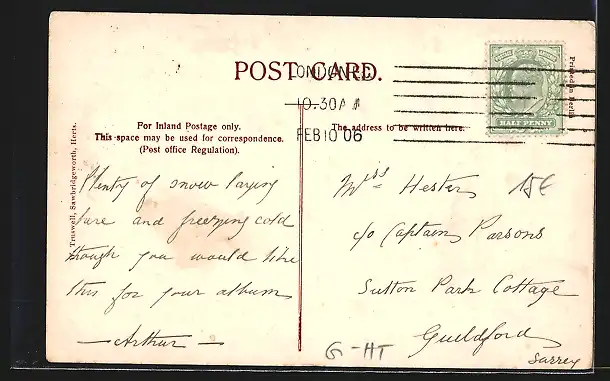 POST CARD.
LONDON. E.C
10.30 AM
FEB 10 06
POSTAGE
HALF PENNY
Printed in Berlin
Truswell, Sawbridgeworth, Herts.
For Inland Postage only.
This space may be used for correspondence.
(Post office Regulation).
Plenty of snow laying
here and freezing cold
though you would like
this for your album
— Arthur —
The address to be written here.
Mrs Hester
15E
c/o Captain Parsons
Sutton Park Cottage
Guildford
Surrey
G-HT